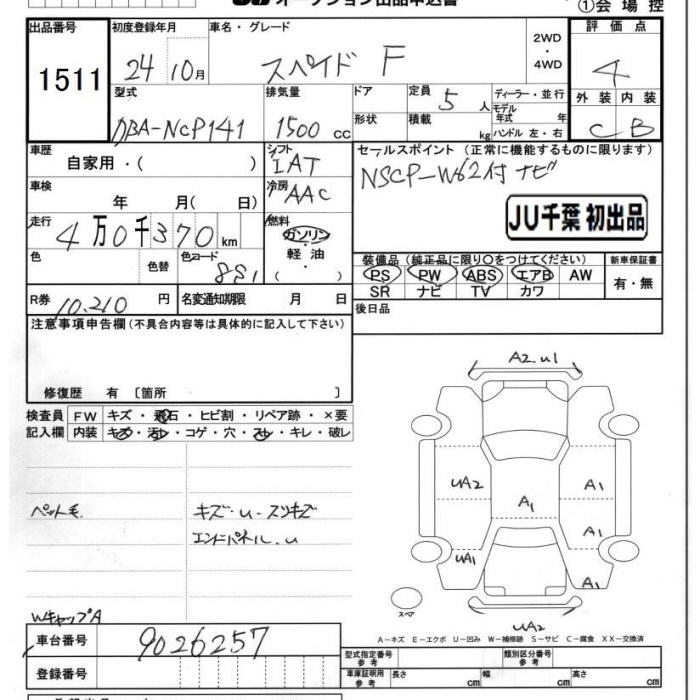 オークション出品申込書
①会場控
出品番号 初度登録年月 車名・グレード 2WD ・ 4WD 評価点
1511 24 10月 スペイド F 4
型式 排気量 ドア 定員 5 人 ディーラー・並行 外装 内装
DBA-NCP141 1500 cc 形状 積載 kg モデル年式 年 ハンドル 左・右 C B
車歴 自家用・( ) シフト IAT セールスポイント (正常に機能するものに限ります)
車検 年 月( 日) 冷房 AAC NSCP-W62付ナビ
JU千葉 初出品
走行 4万0千370km 燃料 ガソリン・軽油・( )
色 色替 色コード 8S1 装備品 (純正品に限り○をつけてください) 新車保証書
PS PW ABS エアB AW 有・無
SR ナビ TV カワ
R券 10,210 円 名変通知期限 月 日 後日品
注意事項申告欄(不具合内容等は具体的に記入して下さい)
修復歴 有 〔箇所 〕
検査員 FW キズ・飛石・ヒビ割・リペア跡・×要
記入欄 内装 キズ・汚レ・コゲ・穴・スレ・キレ・破レ
ペット毛 キズ・U-スリキズ
エンドパネル.U
WキャップA
A2.U1
UA2 A1 A1
A1
UA1 A1
スペア
UA2
A-キズ E-エクボ U-凹み W-補修跡 S-サビ C-腐食 XX-交換済
車台番号 9026257 型式指定番号 参考 類別区分番号 参考
登録番号 車庫証明用 参考 長さ cm 幅 cm 高さ cm